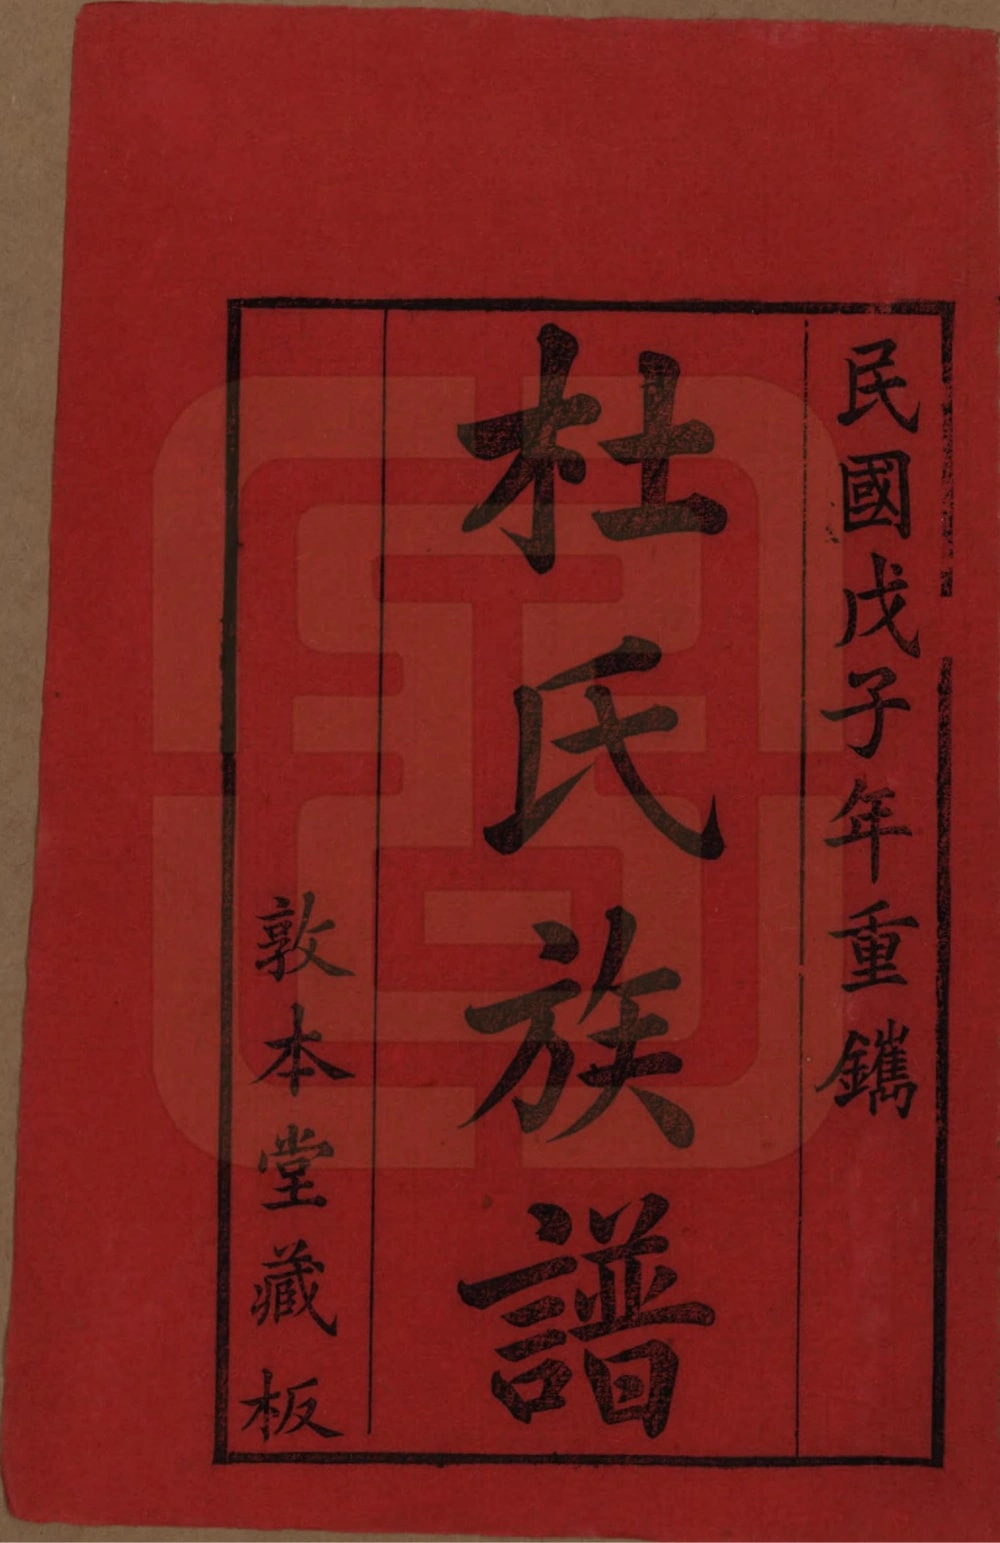 民國戊子年重鐫
杜氏族譜
敦本堂藏板